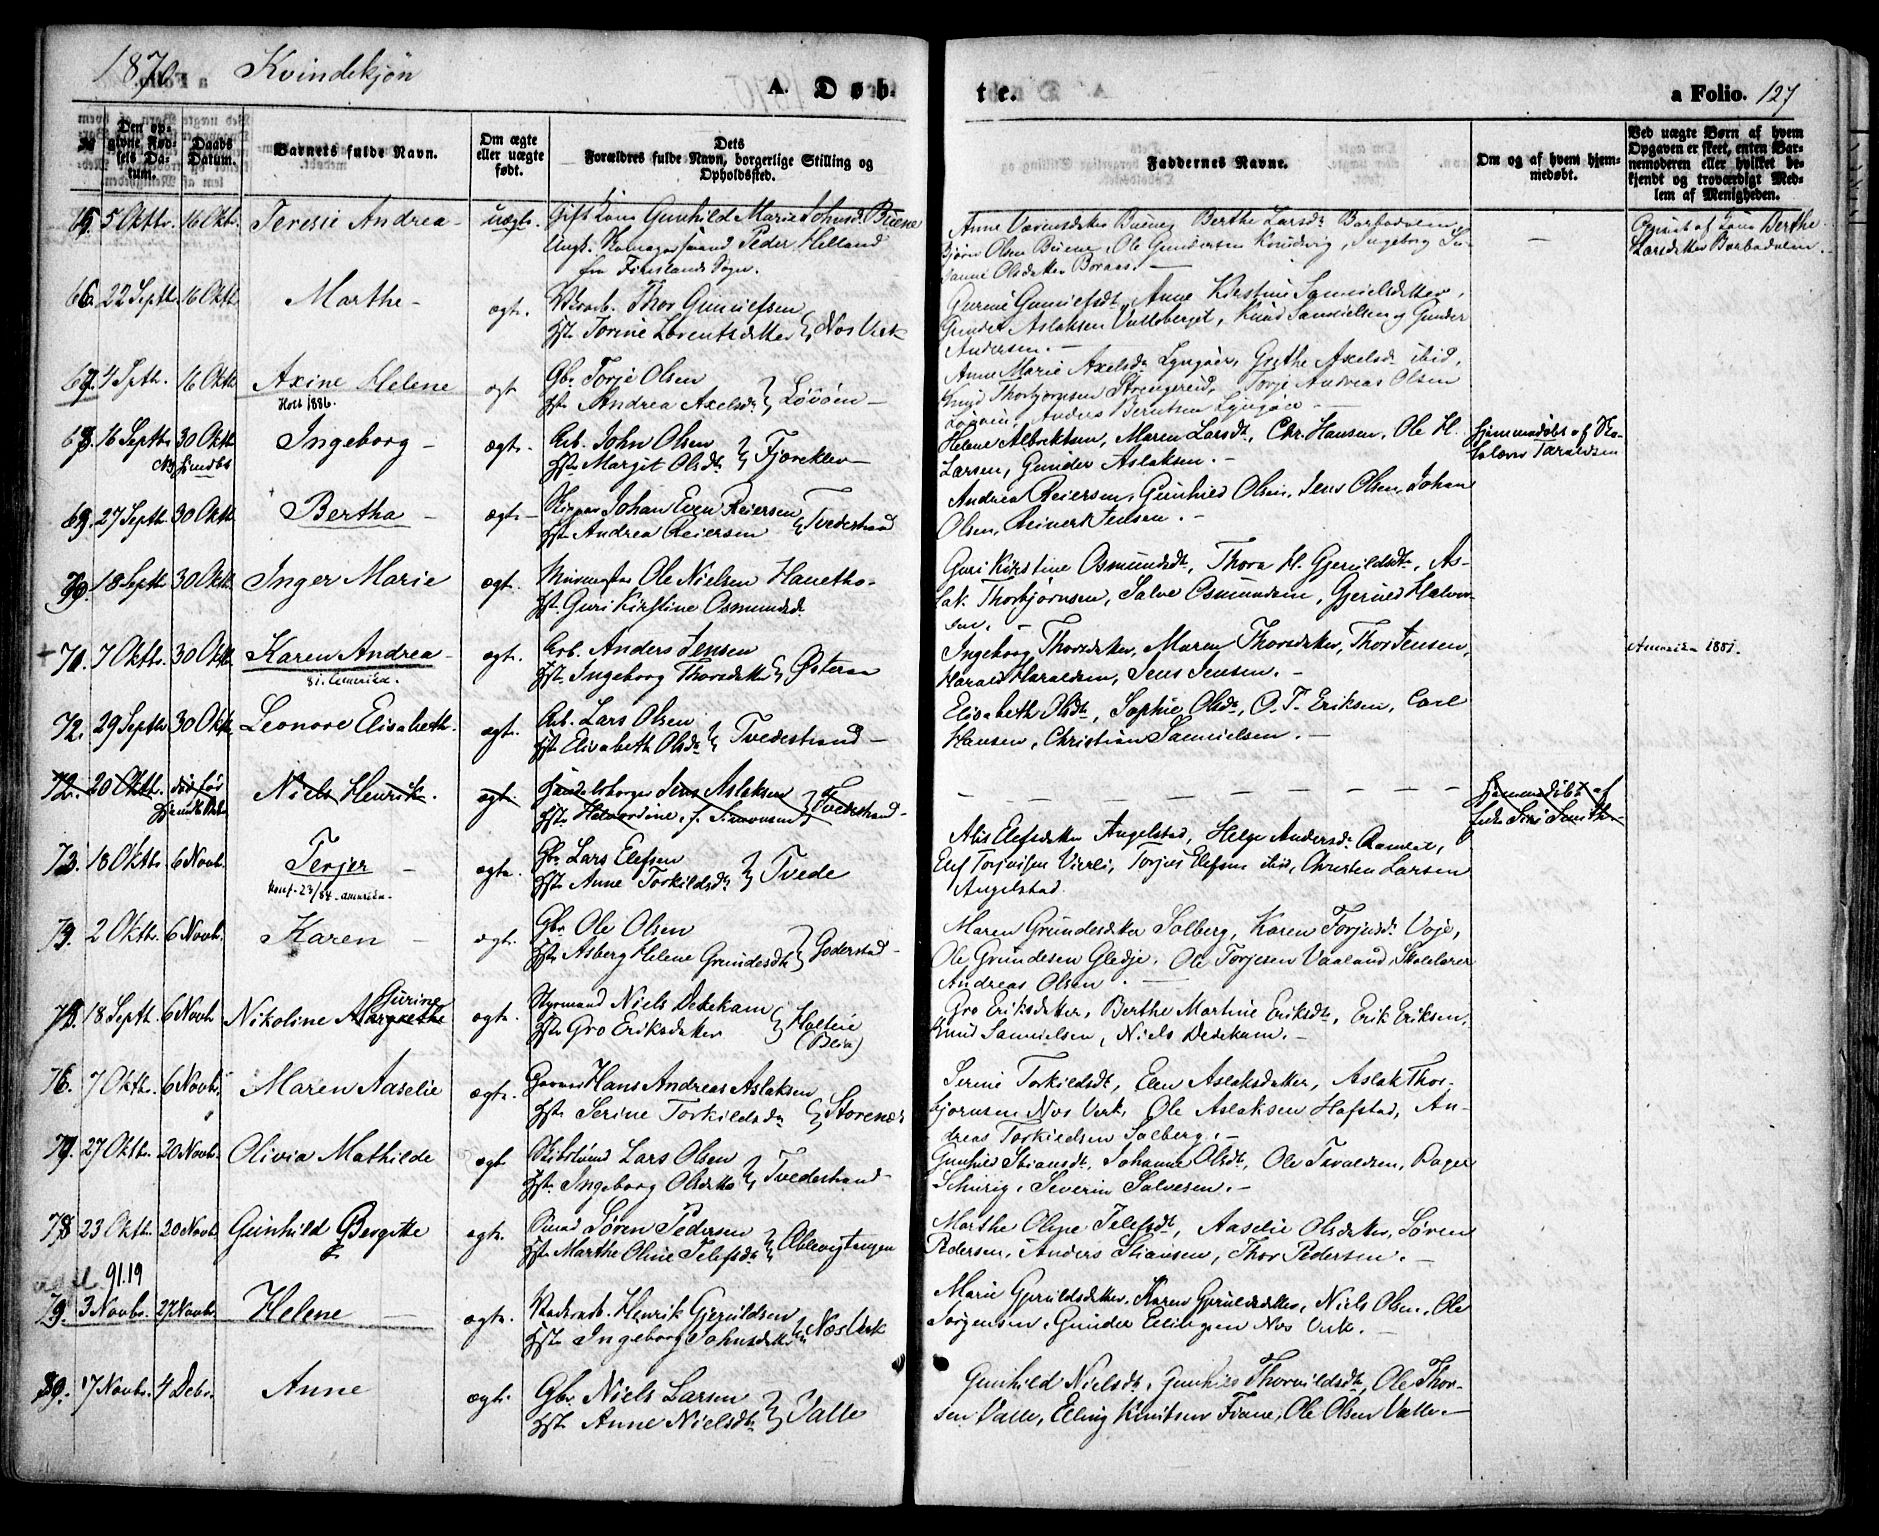 1870. Kvindekjøn
A. Døbte.
a Folio. 127
№
Den opgivne Fødsels Datum.
Daabs Datum.
Barnets fulde Navn.
Om ægte eller uægte født.
Dets Forældres fulde Navn, borgerlige Stilling og Opholdssted.
Faddernes Navne.
Om og af hvem hjemmedøbt.
Ved uægte Børn af hvem Opgaven er skeet, enten Barnemoderen eller hvilket bekjendt og troværdigt Medlem af Menigheden.
65. 5 Oktbr. 16 Oktbr. Teresie Andrea - uægte. Gift Kone Gunhild Marie Johnsdt. Buene
Ungk. Peder Helland
fra Sogn.
Anne Buene, Berthe Larsdt. Barbodalen,
Bjørn Olsen Buene, Ole Gundersen Ingeborg Su-
sanne Olsdatter Boraas. -
-
Opgivet af Kone Berthe
Larsdatter Barbodalen.
66. 22 Septbr. 16 Oktbr. Marthe - ægte.
Thor Gunulfsen
Hst. Torine Lorentsdatter } Næs Verk
Gurine Gunulfsdt., Anne Kirstine Samuelsdatter,
Gunder Aslaksen Vallebergt, Knud Samuelsen og Gunder
Andersen. -
67. 4 Septbr. 16 Oktbr. Axine Helene ægte
Holt 1886.
Gbr. Torje Olsen
Hst. Andrea Axelsdt. } Løvøen -
Anne Marie Axelsdt. Lyngøer, Grethe Axelsdt. ibid,
Knud Thorbjørnsen Strengereid, Torje Andreas Olsen
Løvøen, Anders Berntsen Lyngøer -
68. 16 Septbr. 30 Oktbr. Ingeborg - ægte.
Arb. John Olsen
Hst. Margit Olsdt. } Fjæreklev -
Helene Albrektsen, Maren Larsdt., Chr. Hansen, Ole H.
Larsen, Gunder Aslaksen. -
Hjemmedøbt af Sko-
lelærer Taraldsen
69. 27 Septbr. 30 Oktbr. Bertha - ægte -
Skipper Johan Even Reiersen
Hst. Andrea Reiersen } Tvedestrand
Andrea Reiersen, Gunhild Olsen, Jens Olsen, Johan
Olsen, Reinert Jensen. -
70. 18 Septbr. 30 Oktbr. Inger Marie ægte.
Ole Nielsen Hauetho-
Hst. Guri Kirstine Osmundsd.
Guri Kirstine Osmundsdt., Thora H. Gjeruldsdt., As-
lak Thorbjørnsen, Salve Osmundsen, Gjeruld Halvor-
sen. -
71. 7 Oktbr. 30 Oktbr. Karen Andrea - ægte.
81. Amerika.
Arb. Anders Jensen
Hst. Ingeborg Thorsdatter } Østeraa
Ingeborg Thorsdatter, Maren Thorsdatter, Thor Jensen,
Harald Haraldsen, Jens Jensen. -
Amerika 1881.
72. 29 Septbr. 30 Oktbr. Leonore Elisabeth. ægte.
Arb. Lars Olsen
Hst. Elisabeth Olsdt. } Tvedestrand -
Elisabeth Olsdt., Sophie Olsdt., O. T. Eriksen, Carl
Hansen, Christian Samuelsen. -
72. 20 Oktbr. død før Niels Henrik. ægte.
Handelsborger Jens Aslaksen
Hst. Halvordine, f. Simonsen } Tvedestrand -
Hjemmedøbt af
73. 18 Oktbr. 6 Novb. Terjer - ægte
Konf. 23/84. Amerika.
Gbr. Lars Elefsen
Hst. Anne Torkildsdt. } Tvede
Alis Elefsdatter Angelstad, Helge Andersdt.
Elef Torjussen Virrli, Torjus Elefsen ibid, Christen Larsen
Angelstad.
2 Oktbr. 6 Novb. Karen - ægte.
Gbr. Ole Olsen
Hst. Asberg Helene Grundesdt. } Goderstad -
Maren Grundesdatter Solberg, Karen Torjusdt. Voje,
Ole Grundesen Gledje, Ole Torjesen Vaaland, Skolelærer
Andreas Olsen. -
75. 18 Septbr. 6 Novb. Nikoline Margrethe Gurine ægte.
Styrmand Niels Dedekam
Hst. Gro Eriksdatter } Holteie
(Blia)
Gro Eriksdatter, Berthe Martine Eriksdt., Erik Eriksen,
Knud Samuelsen, Niels Dedekam. -
76. 7 Oktbr. 6 Novb. Maren Aaselie ægte.
Hans Andreas Aslaksen
Hst. Serine Torkildsdt. } Storenæs
Serine Torkildsdt., Elen Aslaksdatter, Aslak Thor-
bjørnsen Næs Verk, Ole Aslaksen Hafstad, An-
dreas Torkildsen Solberg. -
77. 27 Oktbr. 20 Novb. Olivia Mathilde ægte
Lars Olsen
Hst. Ingeborg Olsdatter } Tvedestrand -
Gunhild Stiansdt., Johanne Olsdt., Ole Taraldsen, Roger
Schurig, Severin Salvesen. -
78. 23 Oktbr. 20 Novb. Gunhild Bergitte ægte.
Smed Søren Pedersen
Hst. Marthe Oline Telefsdt. }
Marthe Oline Telefsdt., Aaselie Olsdatter, Søren
Pedersen, Anders Stiansen, Thor Pedersen. -
91.19
79. 3 Novbr. 27 Novbr. Helene - ægte.
Henrik Gjeruldsen
Hst. Ingeborg Johnsdatter } Næs Verk
Marie Gjeruldsdatter, Karen Gjeruldsdatter, Niels Olsen, Ole
Jørgensen, Gunder Ellingsen Næs Verk. -
80. 17 Novbr. 4 Debr. Anne ægte.
Gbr. Niels Larsen
Hst. Anne Nielsdt. } Valle
Gunhild Nielsdt., Gunhild Thorvildsdt., Ole Thor-
sen Valle, Elling Knutsen Fiane, Ole Olsen Valle. -